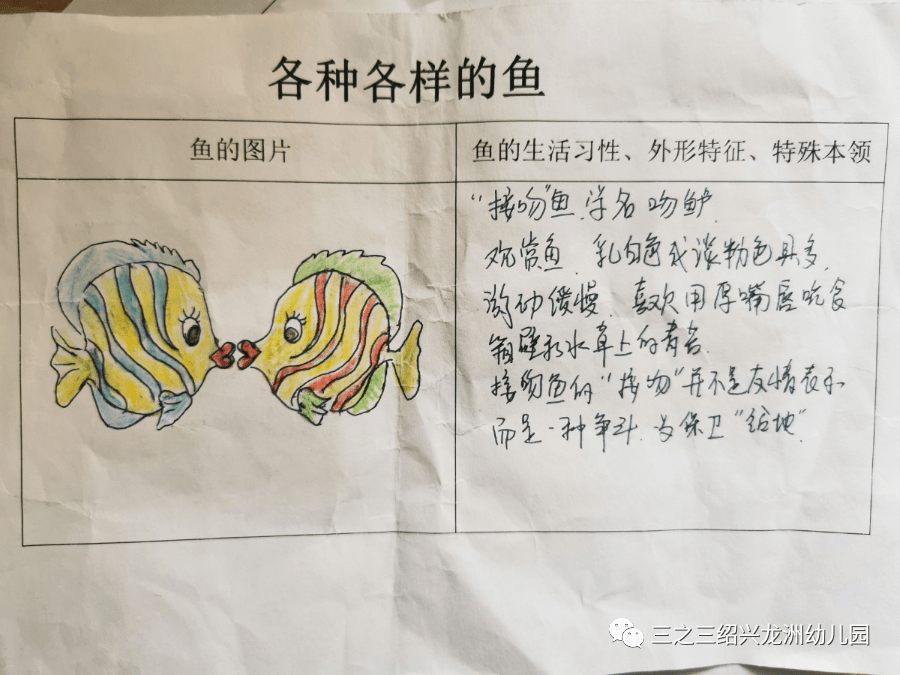 各种各样的鱼
鱼的图片
鱼的生活习性、外形特征、特殊本领
“接吻”鱼.学名 吻鲈.
观赏鱼.乳白色或淡粉色居多.
游动缓慢.喜欢用厚嘴唇吃食
箱壁和水草上的青苔.
接吻鱼的“接吻”并不是友情表示
而是一种争斗.为保卫“领地”.
三之三绍兴龙洲幼儿园